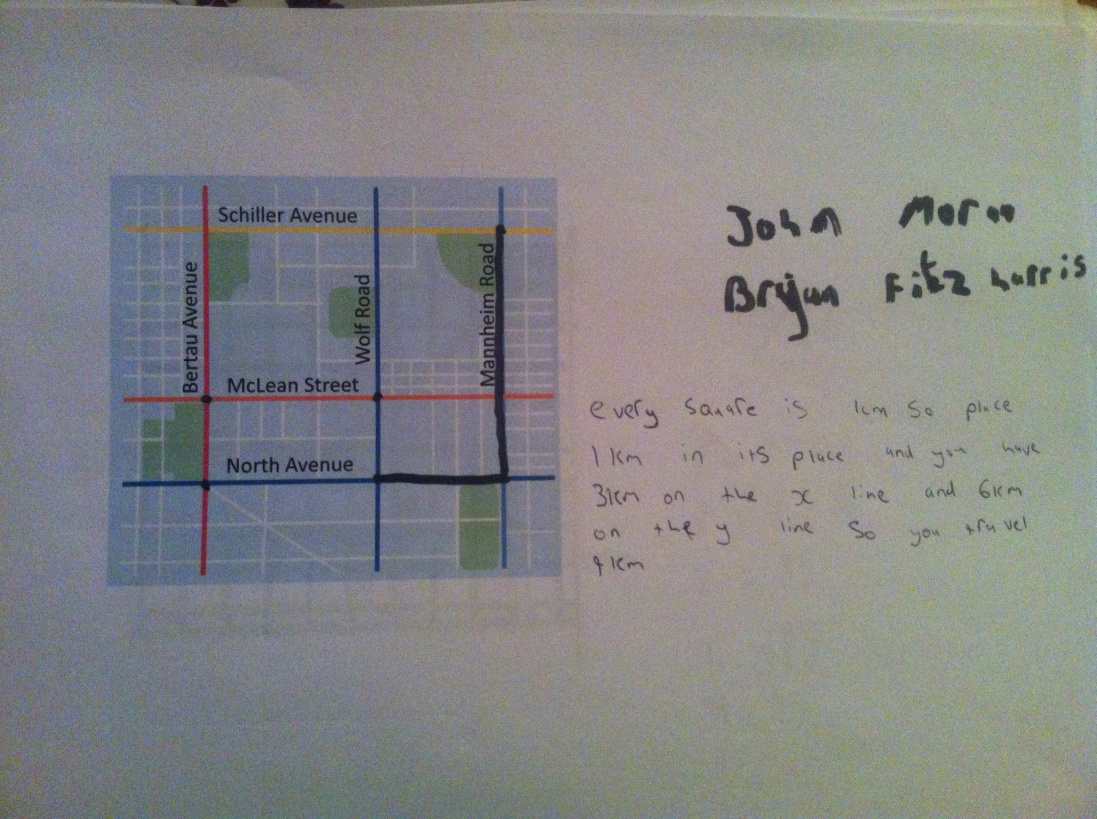 Schiller Avenue
Bertau Avenue
Wolf Road
Mannheim Road
McLean Street
North Avenue
John Moran
Bryan Fitzharris
every square is 1km so place
1km in its place and you have
3km on the x line and 6km
on the y line so you travel
9km